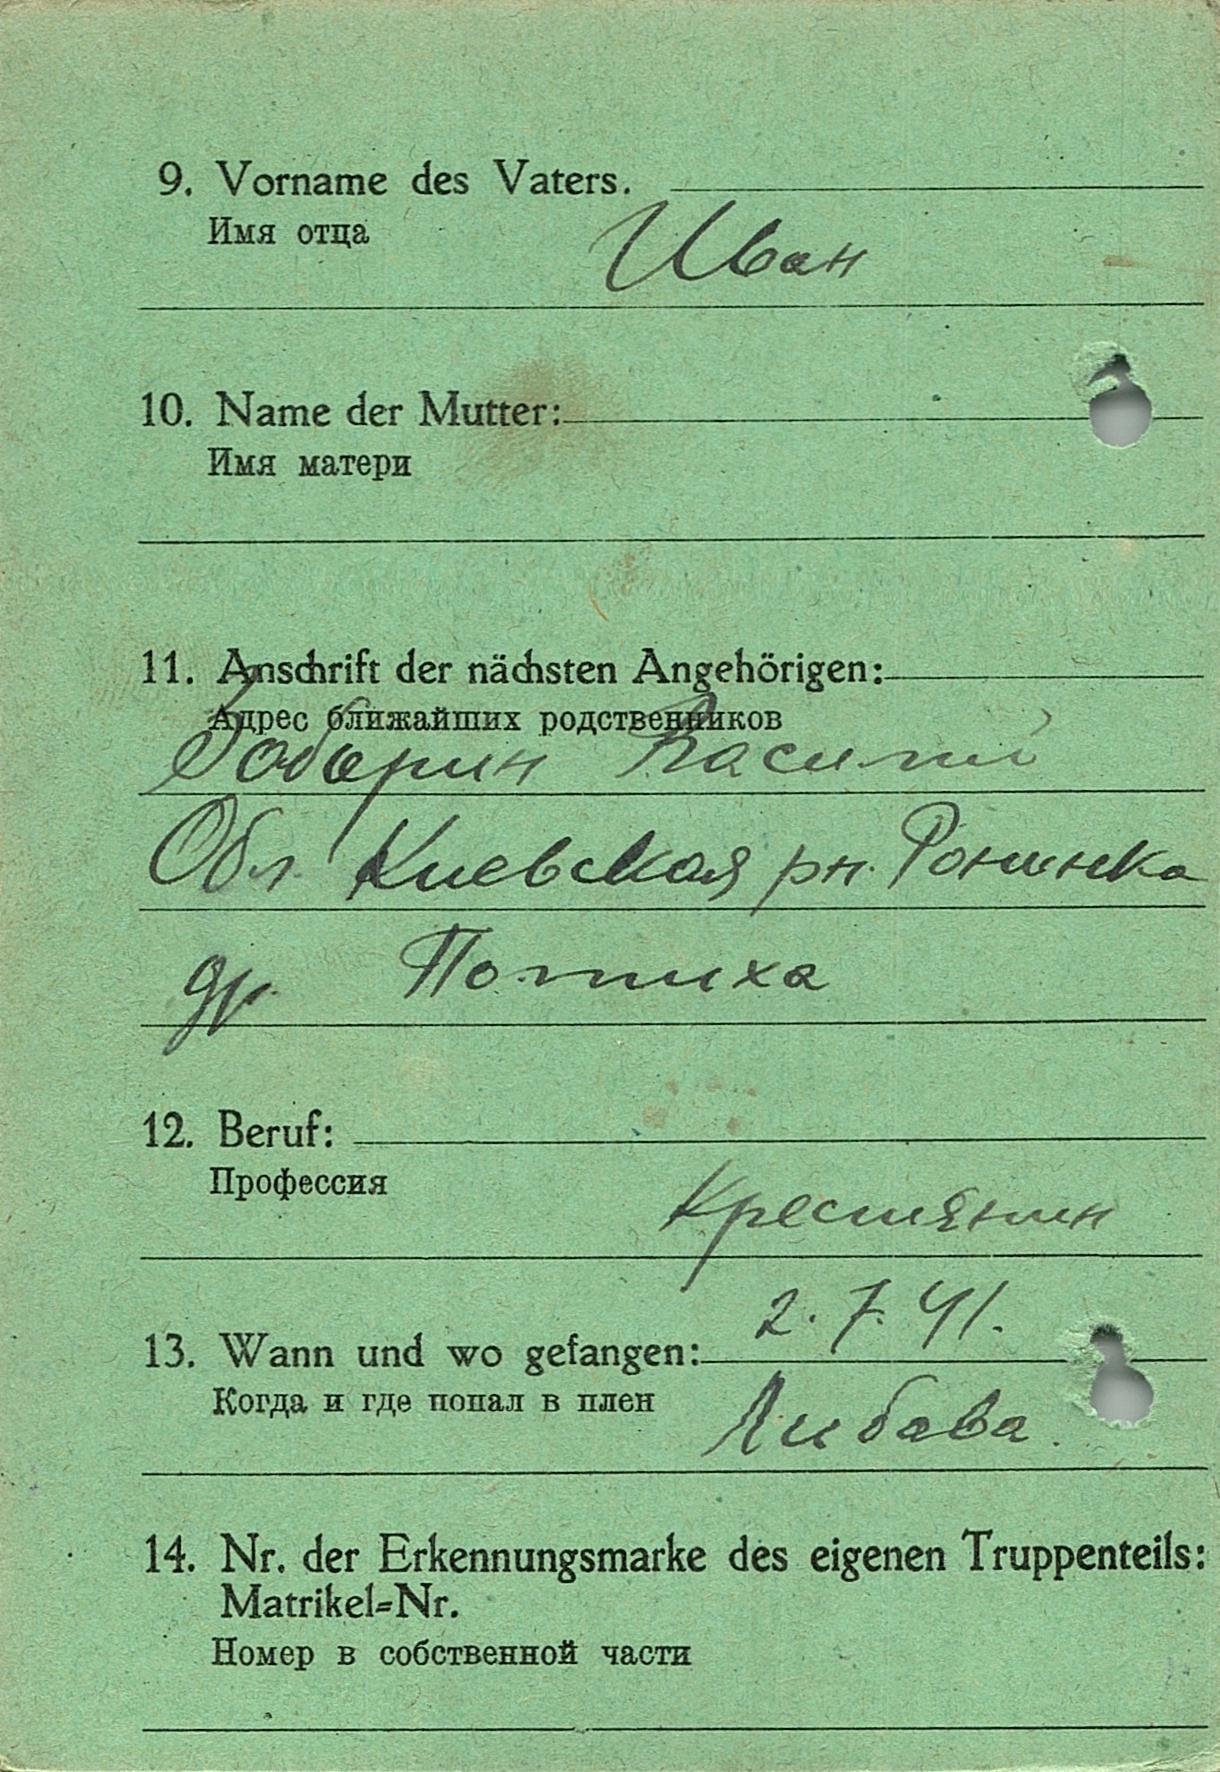 9. Vorname des Vaters.
Имя отца
Иван
10. Name der Mutter:
Имя матери
11. Anschrift der nächsten Angehörigen:
Адрес ближайших родственников
Василий
Обл. Киевская рн.
др. Потиха
12. Beruf:
Профессия
Крестянин
2.7.41.
13. Wann und wo gefangen:
Когда и где попал в плен
Либава.
14. Nr. der Erkennungsmarke des eigenen Truppenteils:
Matrikel-Nr.
Номер в собственной части